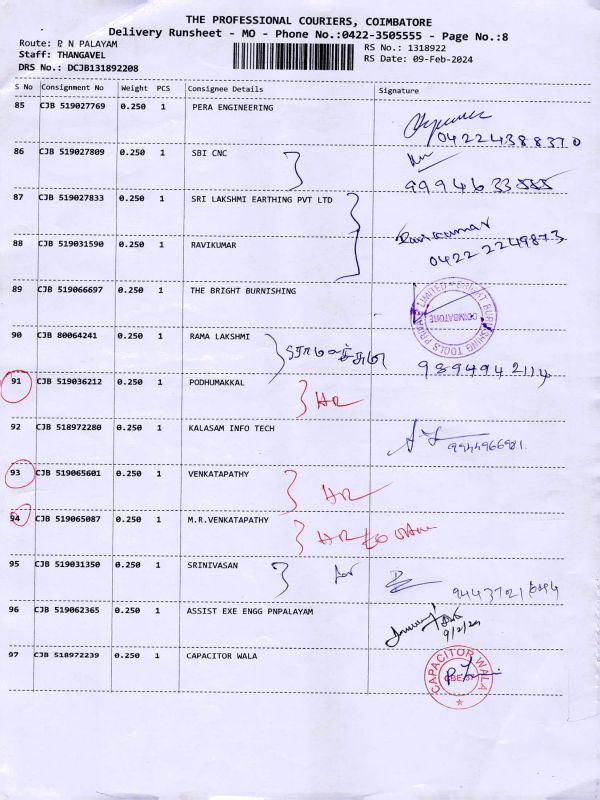 THE PROFESSIONAL COURIERS, COIMBATORE
Delivery Runsheet - MO - Phone No.:0422-3505555 - Page No.:8
Route: P N PALAYAM
RS No.: 1318922
Staff: THANGAVEL
RS Date: 09-Feb-2024
DRS No.: DCJB131892208
S No Consignment No Weight PCS Consignee Details Signature
85 CJB 519027769 0.250 1 PERA ENGINEERING
04224388370
86 CJB 519027809 0.250 1 SBI CNC
9994633555
87 CJB 519027833 0.250 1 SRI LAKSHMI EARTHING PVT LTD
Ravikumar
0422 2249873
88 CJB 519031590 0.250 1 RAVIKUMAR
89 CJB 519066697 0.250 1 THE BRIGHT BURNISHING
BRIGHT BURNISHING TOOLS PRIVATE LIMITED
COIMBATORE
90 CJB 80064241 0.250 1 RAMA LAKSHMI
9894942114
91 CJB 519036212 0.250 1 PODHUMAKKAL
HR
92 CJB 518972280 0.250 1 KALASAM INFO TECH
9944966981
93 CJB 519065601 0.250 1 VENKATAPATHY
HR
94 CJB 519065087 0.250 1 M.R.VENKATAPATHY
HR
95 CJB 519031350 0.250 1 SRINIVASAN
96 CJB 519062365 0.250 1 ASSIST EXE ENGG PNPALAYAM
9/2/24
97 CJB 518972239 0.250 1 CAPACITOR WALA
CAPACITOR WALA